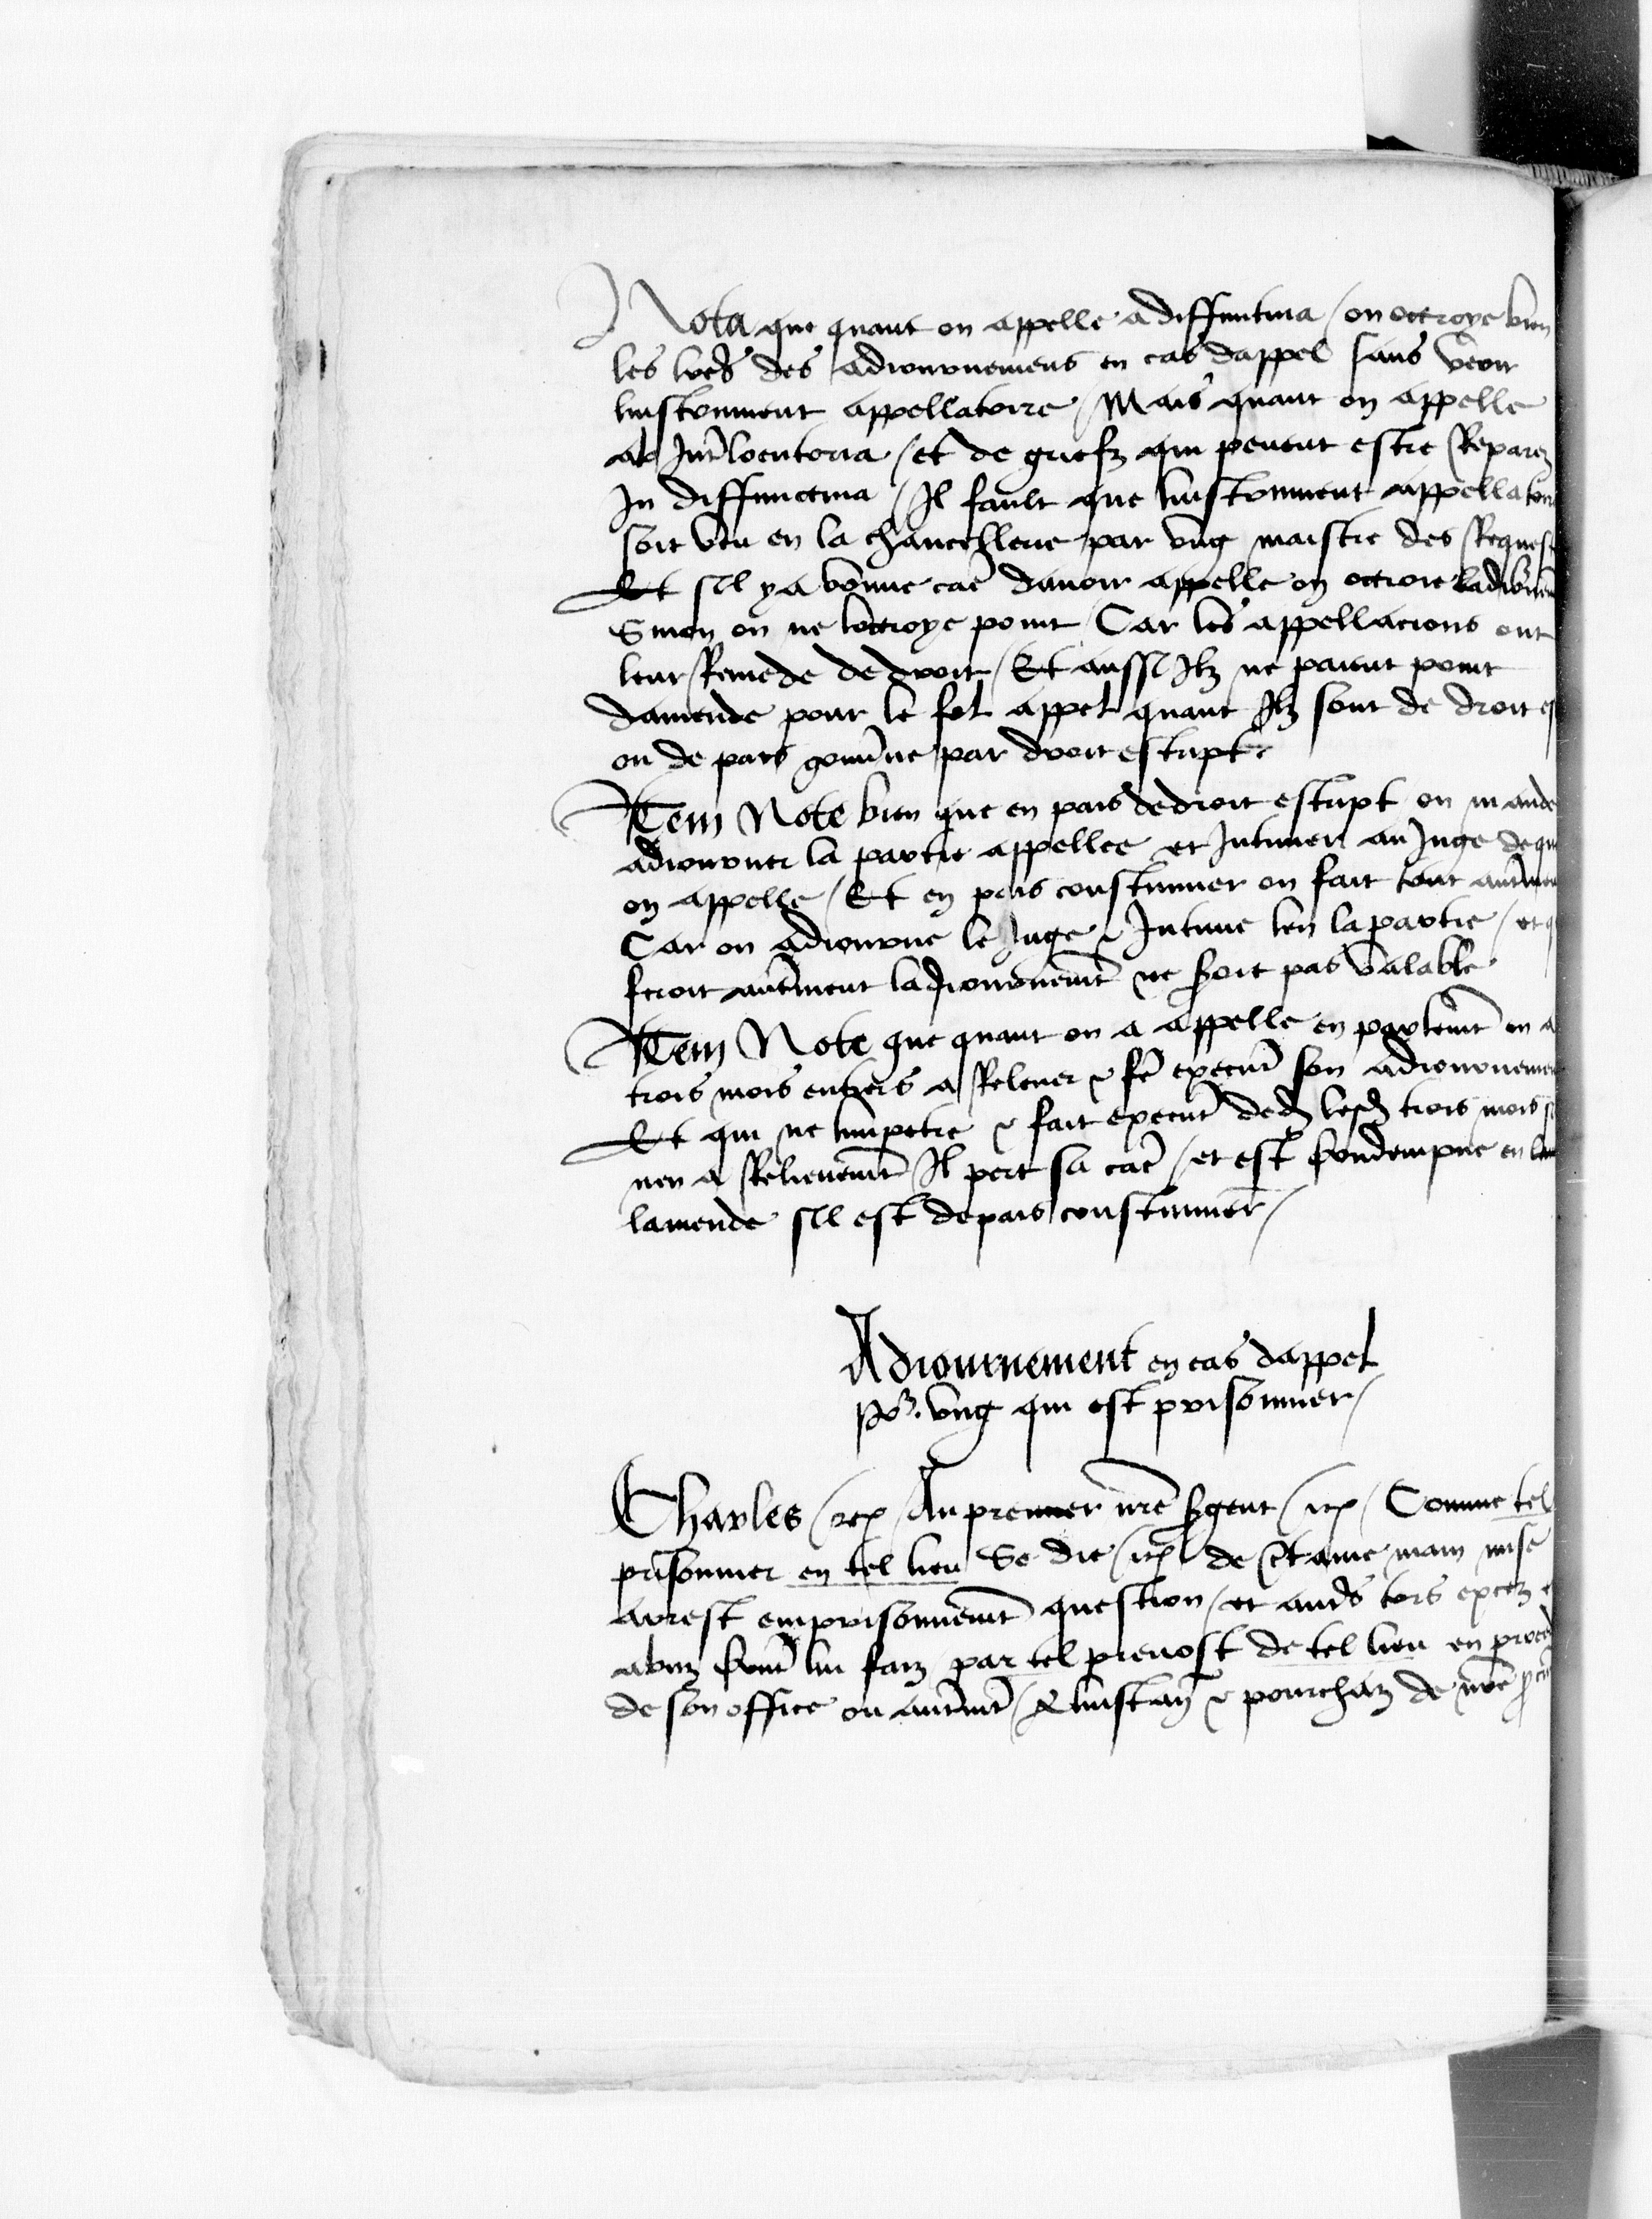 Nota que quant on appelle a diffinitiua / on octroye bien
les lres des adiournemens en cas dappel sans veoir
linstrument appellatoire / Mais quant on appelle
ab Interlocutoria / et de griefz qui peuent estre Reparez
In diffinictiua / Il fault que linstrument appellatoire
soit veu en la chancellerie par vng maistre des Requestes
Et sil y a bonne cae dauoir appelle on octroie
Sinon on ne loctroye point Car les appellacions ont
leur Remede de droit / Et aussi Ilz ne paient point
damende pour le fol appel quant Ilz sont de droit
ou de pais gouverne par droit escript
Item Note bien que en pais de droit escript on mande
adiourner la partie appellee et Intimer au Juge de qui
on appelle / Et en pais coustumier on fait tout autrement
Car on adiourne le Juge & Intime len la partie / et
feroit autrement ladiournement ne seroit pas valable
Item Note que quant on a appelle en parlement on a
trois mois entiers a Releuer & fe executer son adiournement
Et qui ne limpetre & fait executer dedens lesd trois mois
nen a Relieuement Il pert sa cae / et est condempne en
lamende sil est de pais coustumier /
Adiournement en cas dappel
Pour vng qui est prisonnier /
Charles / etc / Au premier nre sergent / etc / Comme tel
prisonnier en tel lieu Se die / etc / de certaine main mise
arrest emprisonnement question / et autres tors excez
abuz lui faiz par tel preuost de tel lieu en
de son office ou autrement / a linstance & pourchaz de nre